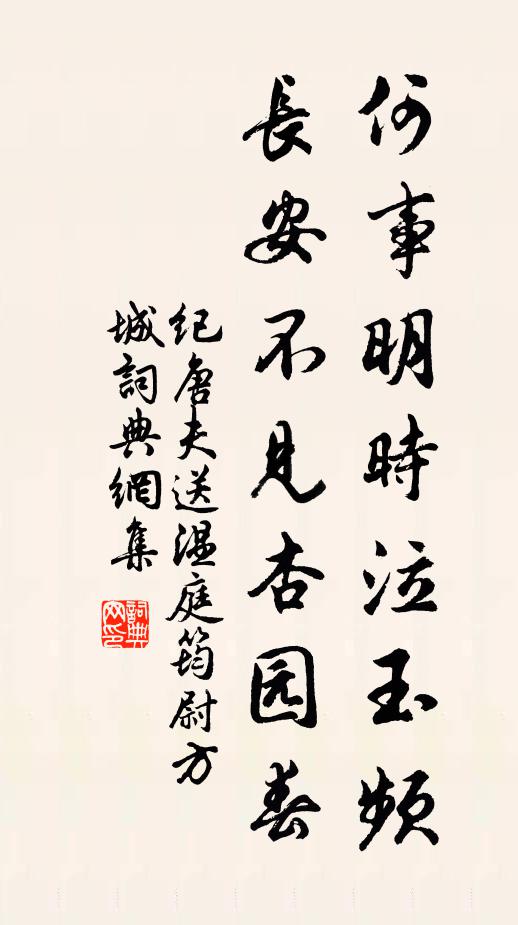 何事明時泣玉頻
長安不見杏园春
紀唐夫送温庭筠尉方
城詞典網集
詞典
网印